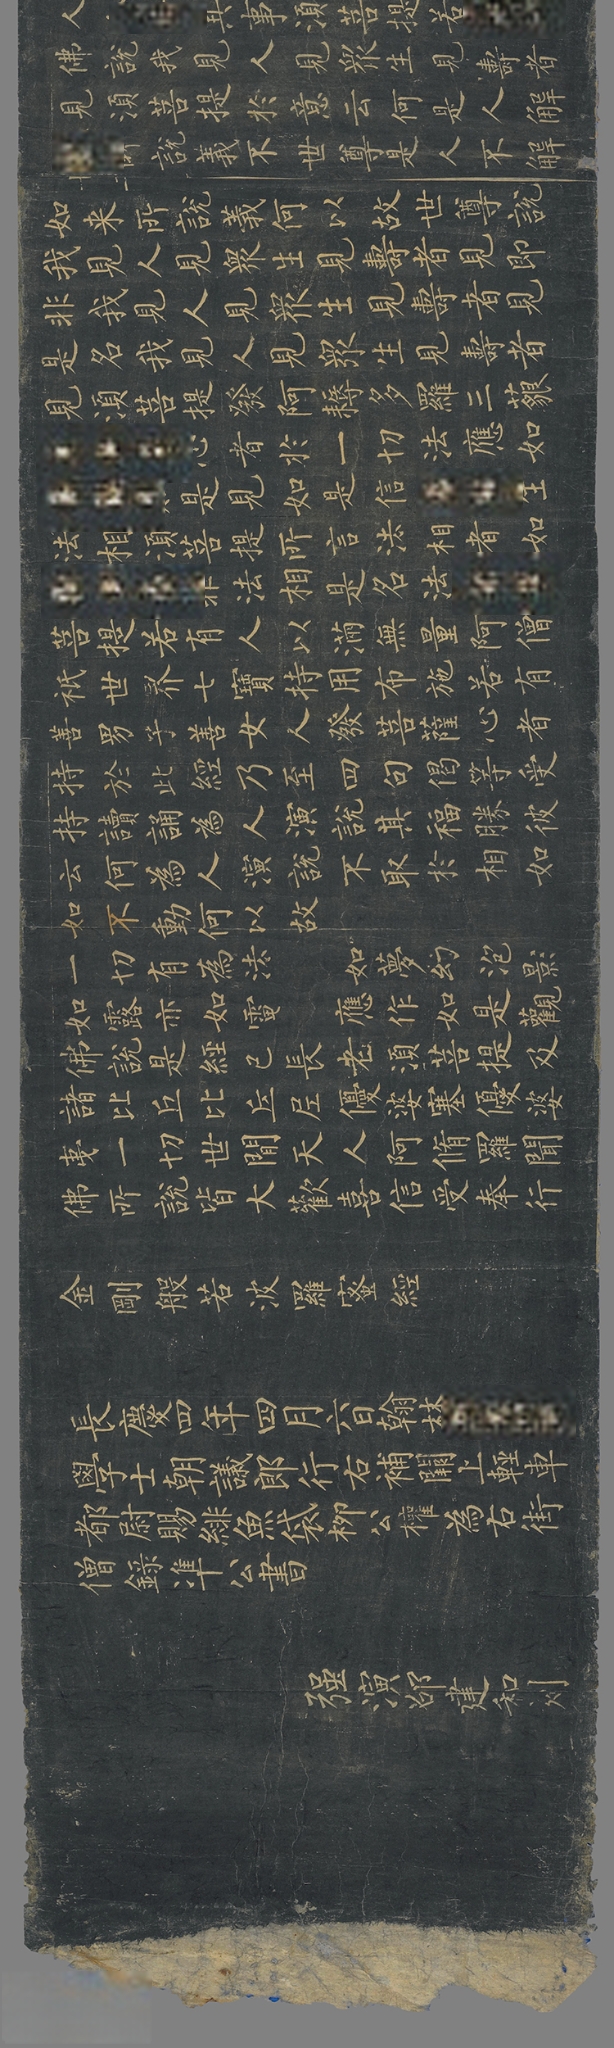 人其事須菩提若
佛說我見人見衆生見壽者
見須菩提於意云何是人解
所說義不世尊是人不解
如来所說義何以故世尊說
我見人見衆生見壽者見即
非我見人見衆生見壽者見
是名我見人見衆生見壽者
見須菩提發阿耨多羅三藐
心者於一切法應如
是見如是信生
法相須菩提所言法相者如
非法相是名法
菩提若有人以滿無量阿僧
祇世界七寶持用布施若有
善男子善女人發菩薩心者
持於此經乃至四句偈等受
持讀誦為人演說其福勝彼
云何為人演說不取於相如
如不動何以故
一切有為法 如夢幻泡影
如露亦如電 應作如是觀
佛說是經已長老須菩提及
諸比丘比丘尼優婆塞優婆
夷一切世間天人阿脩羅聞
佛所說皆大歡喜信受奉行
金剛般若波羅蜜經
長慶四年四月六日翰林
學士朝議郎行右補闕上輕車
都尉賜緋魚袋柳公權為右街
僧錄準公書
强演邵建和刻